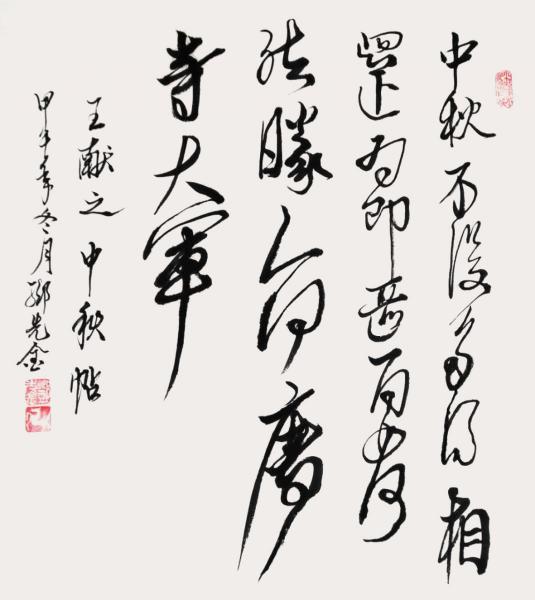 中秋不復不得相
還為即甚省如何
然勝人何慶
等大軍
王献之中秋帖
甲午年冬月先金